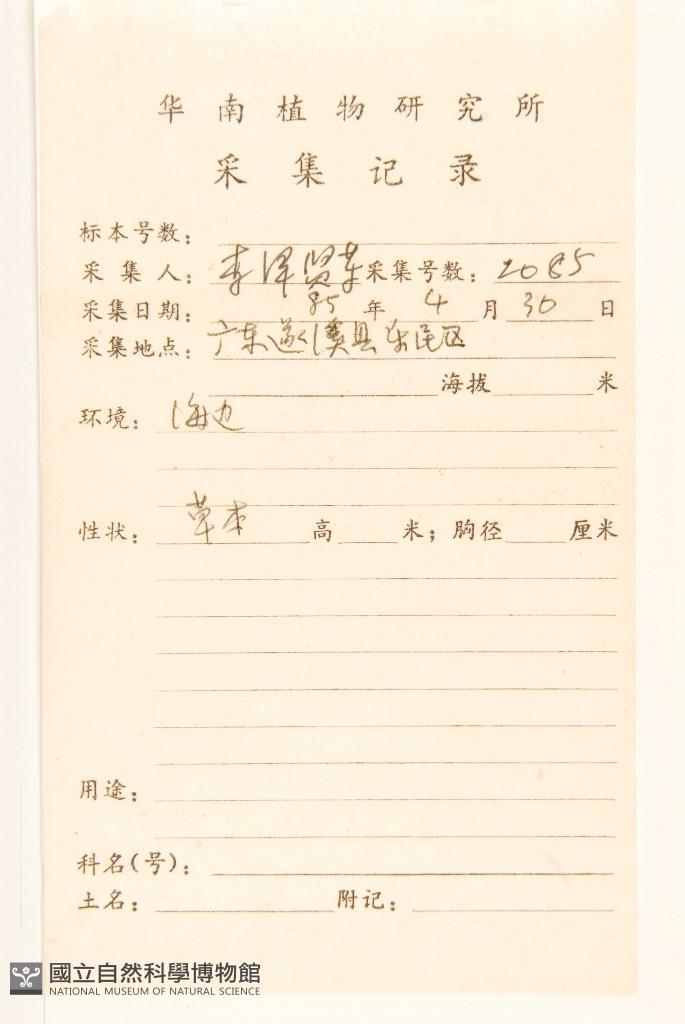 华南植物研究所
采集记录
标本号数：
采集人：李泽贤等 采集号数：2085
采集日期：85年4月30日
采集地点：广东遂溪县乐民区
海拔 米
环境：海边
性状：草本 高 米；胸径 厘米
用途：
科名(号)：
土名： 附记：
國立自然科學博物館
NATIONAL MUSEUM OF NATURAL SCIENCE